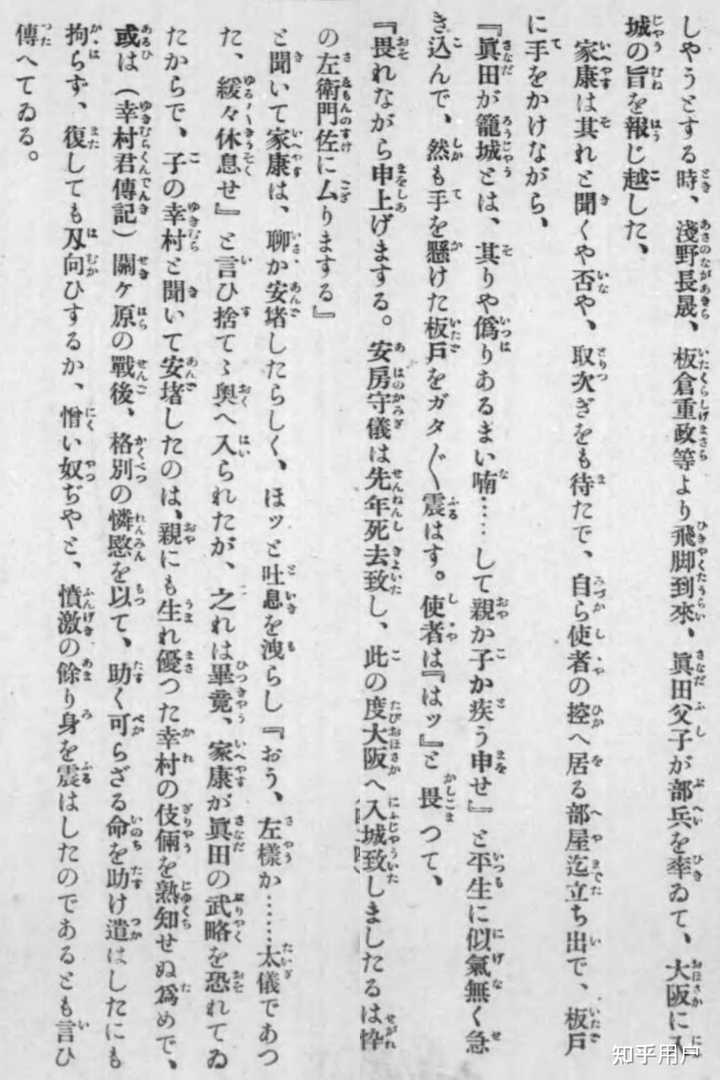 しやうとする時、淺野長晟、板倉重政等より飛脚到來、眞田父子が部兵を率ゐて、大阪に入
城の旨を報じ越した、
家康は其れと聞くや否や、取次ぎをも待たで、自ら使者の控へ居る部屋迄立ち出で、板戸
に手をかけながら、
『眞田が籠城とは、其りや僞りあるまい喃……して親か子か疾う申せ』と平生に似氣無く急
き込んで、然も手を懸けた板戸をガタ〱震はす。使者は『はッ』と畏つて、
『畏れながら申上げまする。安房守儀は先年死去致し、此の度大阪へ入城致しましたるは悴
の左衛門佐に厶りまする』
と聞いて家康は、聊か安堵したらしく、ホッと吐息を洩らし『おう、左樣か……太儀であつ
た、緩々休息せ』と言ひ捨てゝ奥へ入られたが、之れは畢竟、家康が眞田の武略を恐れてゐ
たからで、子の幸村と聞いて安堵したのは、親にも生れ優つた幸村の伎倆を熟知せぬ爲めで、
或は（幸村君傳記）關ヶ原の戰後、格別の憐愍を以て、助く可らざる命を助け遣はしたにも
拘らず、復しても刄向ひするか、憎い奴ぢやと、憤激の餘り身を震はしたのであるとも言ひ
傳へてゐる。
知乎用户